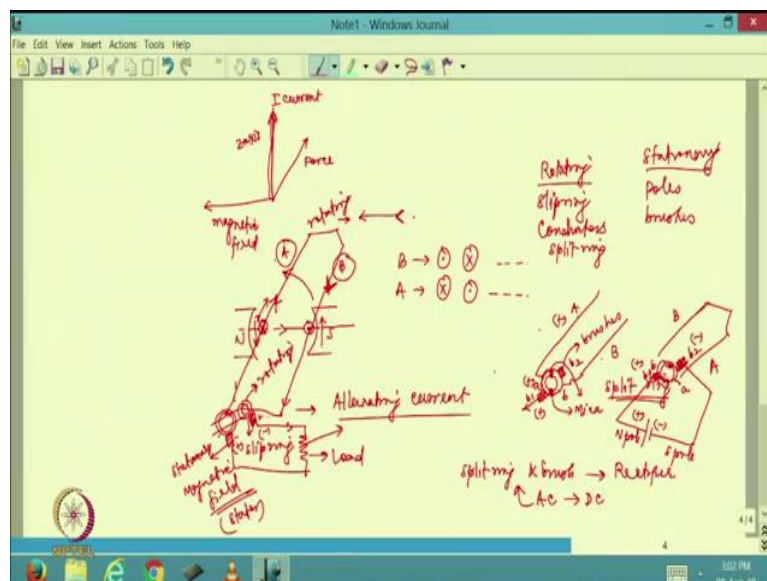 Note1 - Windows Journal
File Edit View Insert Actions Tools Help
I current
z axis
Force
magnetic
field
rotating
A
B
N
S
B →
A →
Rotating
slipring
Conductors
split-ring
Stationary
Poles
brushes
rotating
Alternating current
slipring
Load
stationary
Magnetic
field
(stator)
(+) A
brushes
B
(+) a
b1
b2
b
(+)
Mica
B
A
(-)
(+)
b1
b
b2
(-)
split ring
a
(+) (-)
N pole
S pole
split ring & brush →
AC → DC
4/4
4
NPTEL
3:02 PM